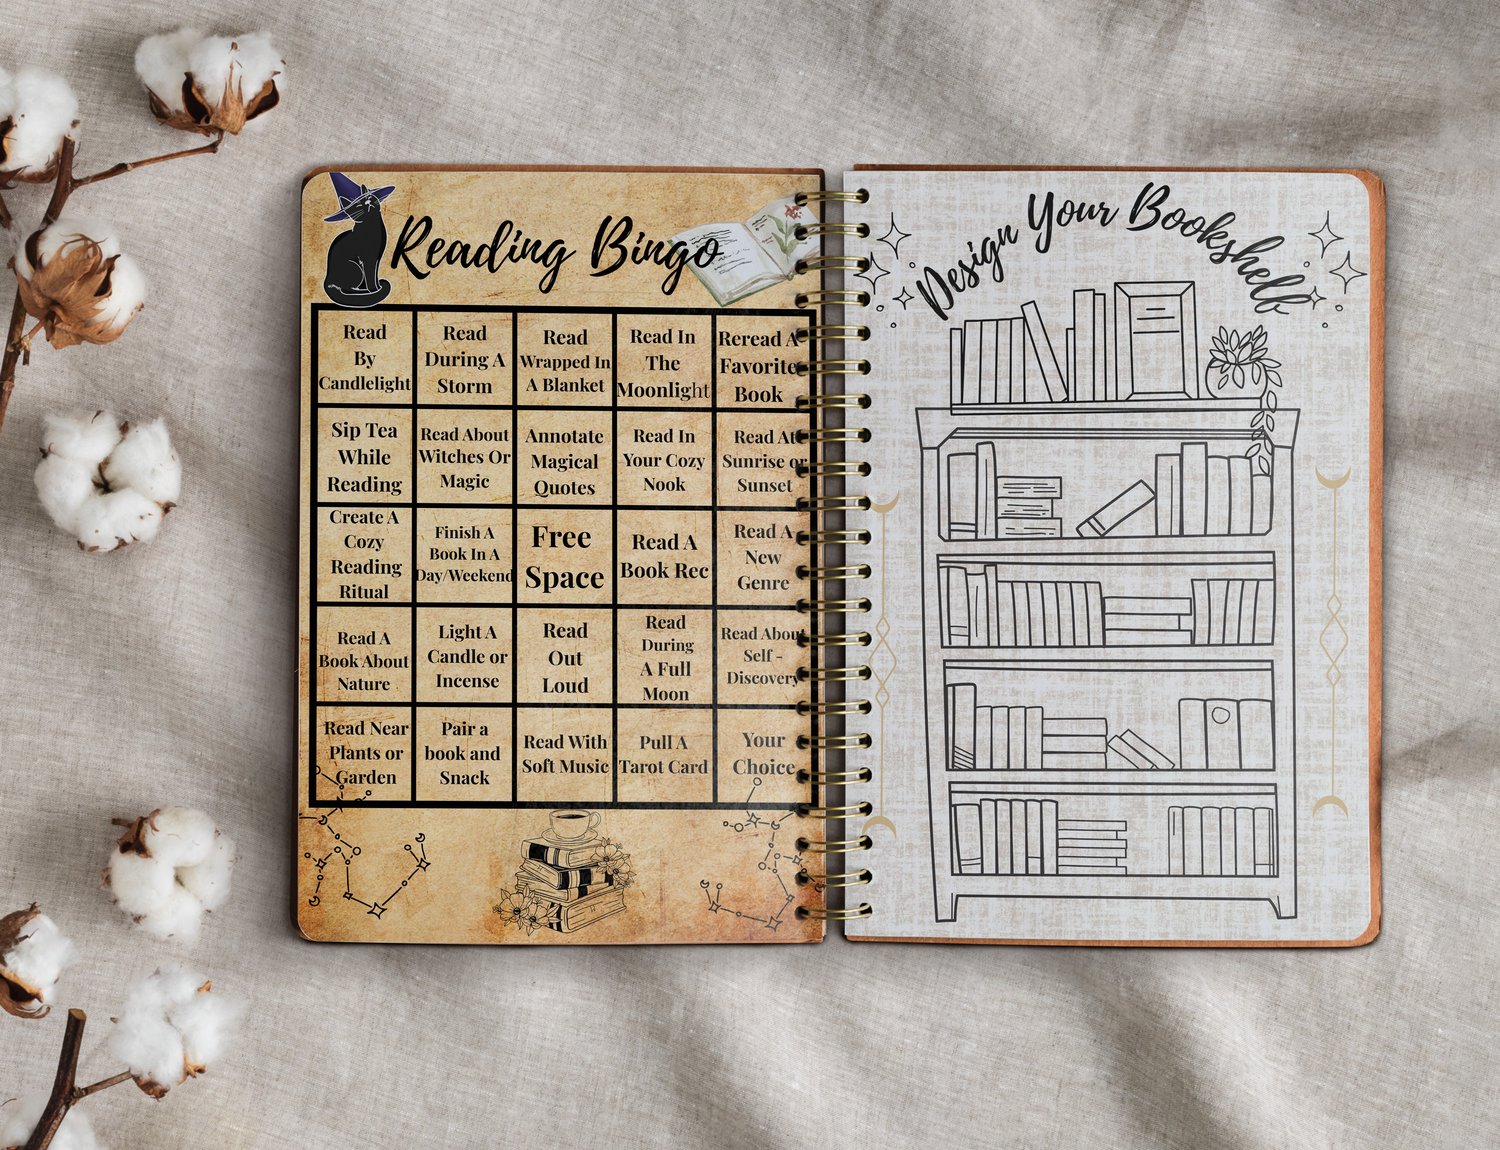 Reading Bingo
Read
By
Candlelight
Read
During A
Storm
Read
Wrapped In
A Blanket
Read In
The
Moonlight
Reread A
Favorite
Book
Sip Tea
While
Reading
Read About
Witches Or
Magic
Annotate
Magical
Quotes
Read In
Your Cozy
Nook
Read At
Sunrise or
Sunset
Create A
Cozy
Reading
Ritual
Finish A
Book In A
Day/Weekend
Free
Space
Read A
Book Rec
Read A
New
Genre
Read A
Book About
Nature
Light A
Candle or
Incense
Read
Out
Loud
Read
During
A Full
Moon
Read About
Self -
Discovery
Read Near
Plants or
Garden
Pair a
book and
Snack
Read With
Soft Music
Pull A
Tarot Card
Your
Choice
Design Your Bookshelf